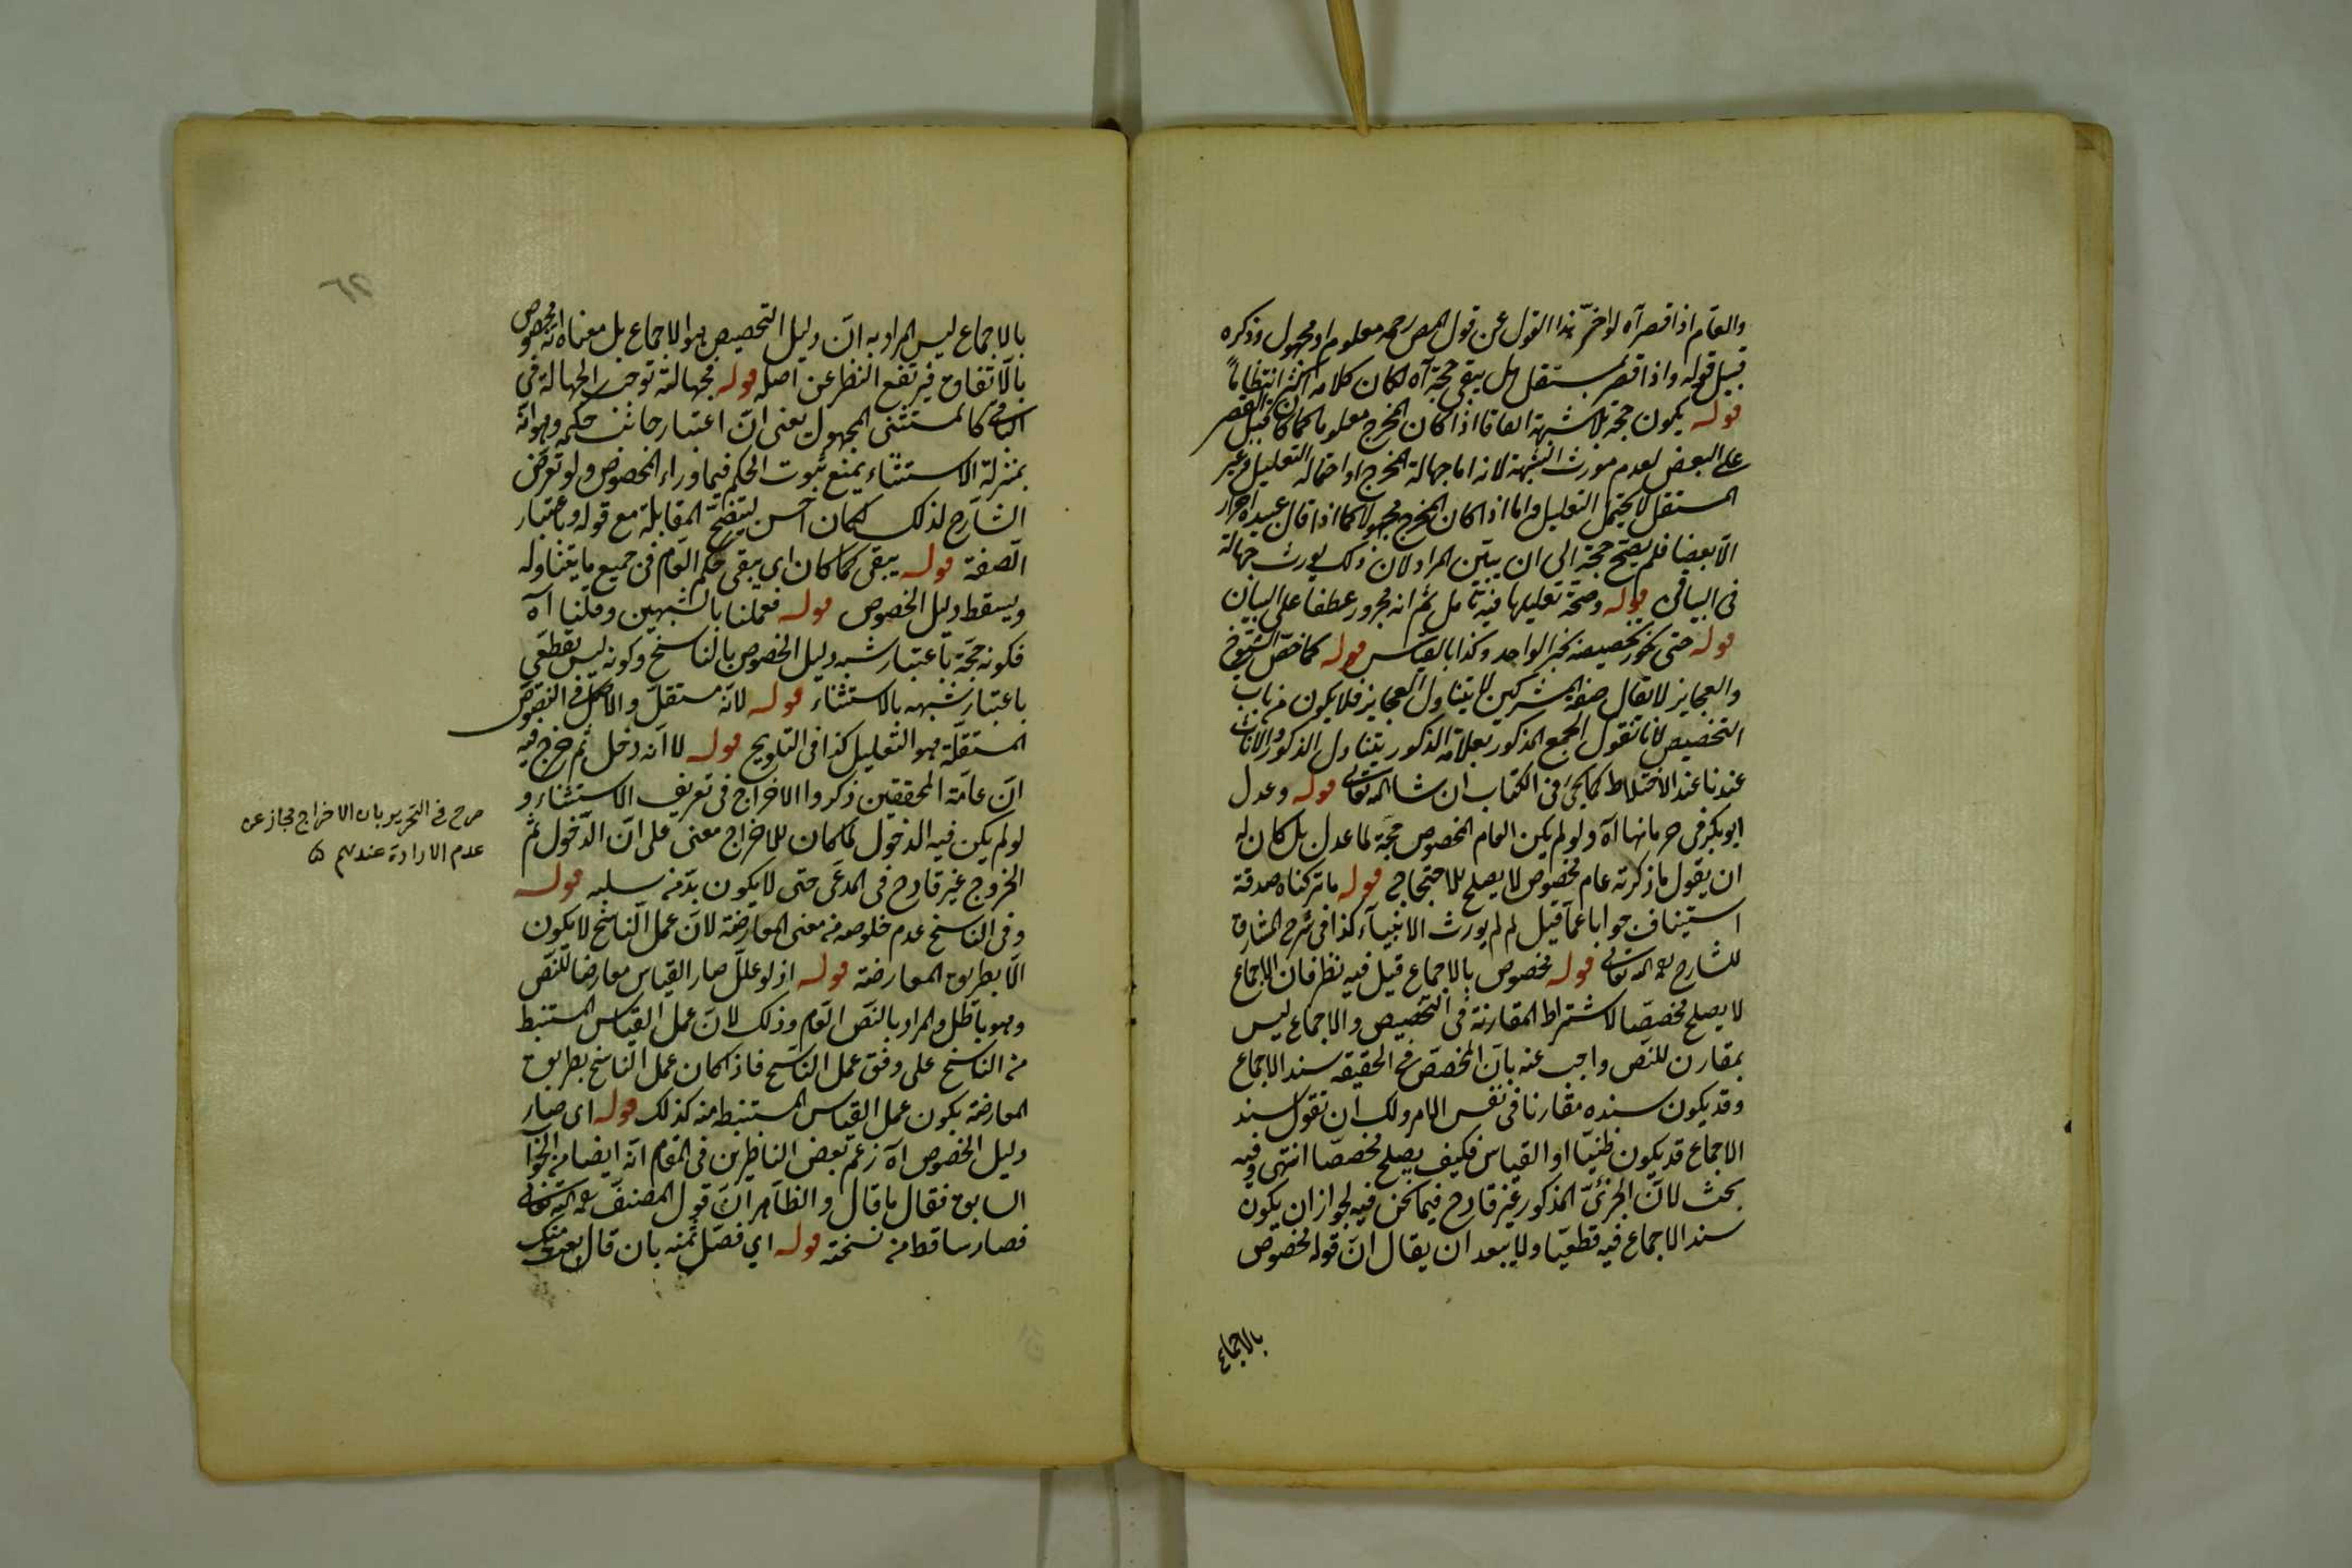 والعام اذا قصر آه لو اخّر هذا القول عن قول المص رحمه معلوم او مجهول وذكره
قبيل قوله واذا قصر بمستقل هل يبقى حجة آه لكان كلامه اكثر انتظاماً
قوله يكون حجة بلا شبهة اتفاقا اذا كان المخرج معلوما كما كان قبيل القصر
على البعض لعدم مورث الشبهة لانه اما جهالة المخرج او احتماله التعليل وغير
المستقل لا يحتمل التعليل واما اذا كان المخرج مجهولا كما اذا قال عبيده احرار
الّا بعضا فلم يصحّ حجة الى ان يتبيّن المراد لان ذلك يورث جهالة
فى الباقى قوله وصحّة تعليلها فيه تأمل ثم انه مجرور عطفا على البيان
قوله حتى يجوز تخصيصه بخبر الواحد وكذا بالقياس قوله كما خصّ الشيوخ
والعجايز لا يقال صفة المشركين لا يتناول العجايز فلا يكون من باب
التخصيص لانا نقول الجمع المذكور بعلامة الذكور يتناول الذكور والاناث
عندنا عند الاختلاط كما يجئ فى الكتاب ان شا الله تعالى قوله وعدل
ابو بكر فى حرمانها آه ولو لم يكن العام المخصوص حجّة لما عدل بل كان له
ان يقول ما ذكرته عام مخصوص لا يصلح للاحتجاج قوله ما تركناه صدقة
استيناف جوابا عمّا قيل لم لم يورث الانبيآء كذا فى شرح المشارق
للشارح رحمه الله تعالى قوله مخصوص بالاجماع قيل فيه نظر فان الاجماع
لا يصلح مخصصّا لاشتراط المقارنة فى التخصيص والاجماع ليس
بمقارن للنصّ واجيب عنه بانّ المخصصّ فى الحقيقه سند الاجماع
وقد يكون سنده مقارنا فى نفس الامر ولك ان تقول سند
الاجماع قد يكون ظنيّا او القياس فكيف يصلح مخصصّا انتهى وفيه
بحث لانّ الجزئىّ المذكور غير قادح فيما نحن فيه لجواز ان يكون
سند الاجماع فيه قطعيّا ولا يبعد ان يقال انّ قوله مخصوص
بالاجماع
بالاجماع ليس المراد به انّ دليل التخصيص هو الاجماع بل معناه انّه مخصوص
بالاتّفاق فيرتفع النظر عن اصله قوله فجهالته توجب الجهالة فى
الباقى كالمستثنى المجهول يعنى انّ اعتبار جانب حكمه وهو انّه
بمنزلة الاستثناء يمنع ثبوت الحكم فيما وراء المخصوص ولو تعرّض
الشارح لذلك لكان احسن ليتضحّ المقابلة مع قوله وباعتبار
الصّفة قوله يبقى كما كان اي يبقى حكم العام فى جميع ما يتناوله
ويسقط دليل الخصوص قوله فعملنا بالشبهين وقلنا آه
فكونه حجّة باعتبار شبه دليل الخصوص بالناسخ وكونه ليس بقطعّى
باعتبار شبهه بالاستثناء قوله لانّه مستقلّ والاصل فى النصوص
المستقلّة هو التعليل كذا فى التلويح قوله لا انّه دخل ثم خرج فيه
انّ عامّة المحققين ذكروا الاخراج فى تعريف الاستثناء و
لو لم يكن فيه الدخول لما كان للاخراج معنى على انّ الدّخول ثم
الخروج غير قادح فى المدعّى حتى لا يكون بدّ من سلبه قوله
وفى الناسخ عدم خلوصه من معنى المعارضة لانّ عمل النّاسخ لا يكون
الّا بطريق المعارضة قوله اذ لو علّل صار القياس معارضا للنصّ
وهو باطل والمراد بالنصّ العام وذلك لانّ عمل القياس المستنبط
من الناسخ على وفق عمل النّاسخ فاذا كان عمل النّاسخ بطريق
المعارضة يكون عمل القياس المستنبط منه كذلك قوله اى صار
دليل الخصوص آه زعم بعض الناظرين فى المقام انّه ايضا من الجواب
السابق فقال ما قال والظاهر انّ قول المصنف رحمه الله تعالى
فصار ساقط من نسخته قوله اي فصّل ثمنه بان قال بعت منك
صرح فى التحرير بان الاخراج مجاز عن
عدم الارادة عندهم